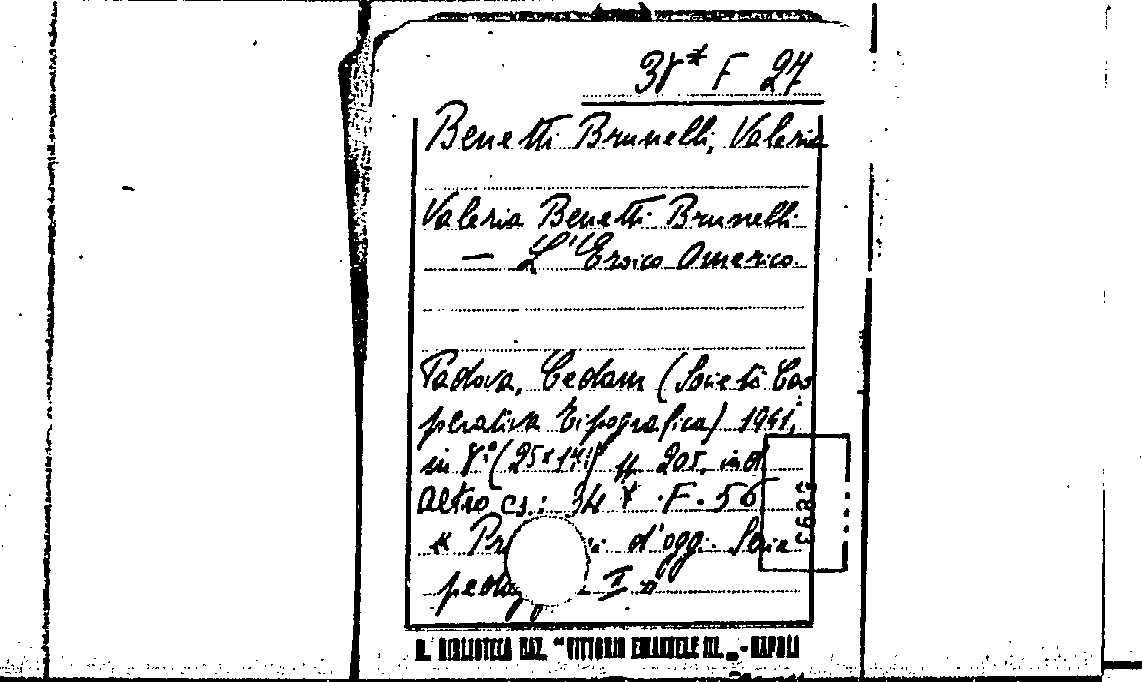 38* F 27
Benetti Brunelli, Valeria
Valeria Benetti Brunelli
— L'Eroico Omerico.
Padova, Cedam (Società Coo
perativa Tipografica) 1941,
in 8° (25x17) pp. 205. ind
Altro es.: 34 F. 56
« d'ogg. Serie
II »
R. BIBLIOTECA NAZ. "VITTORIO EMANUELE III." - NAPOLI